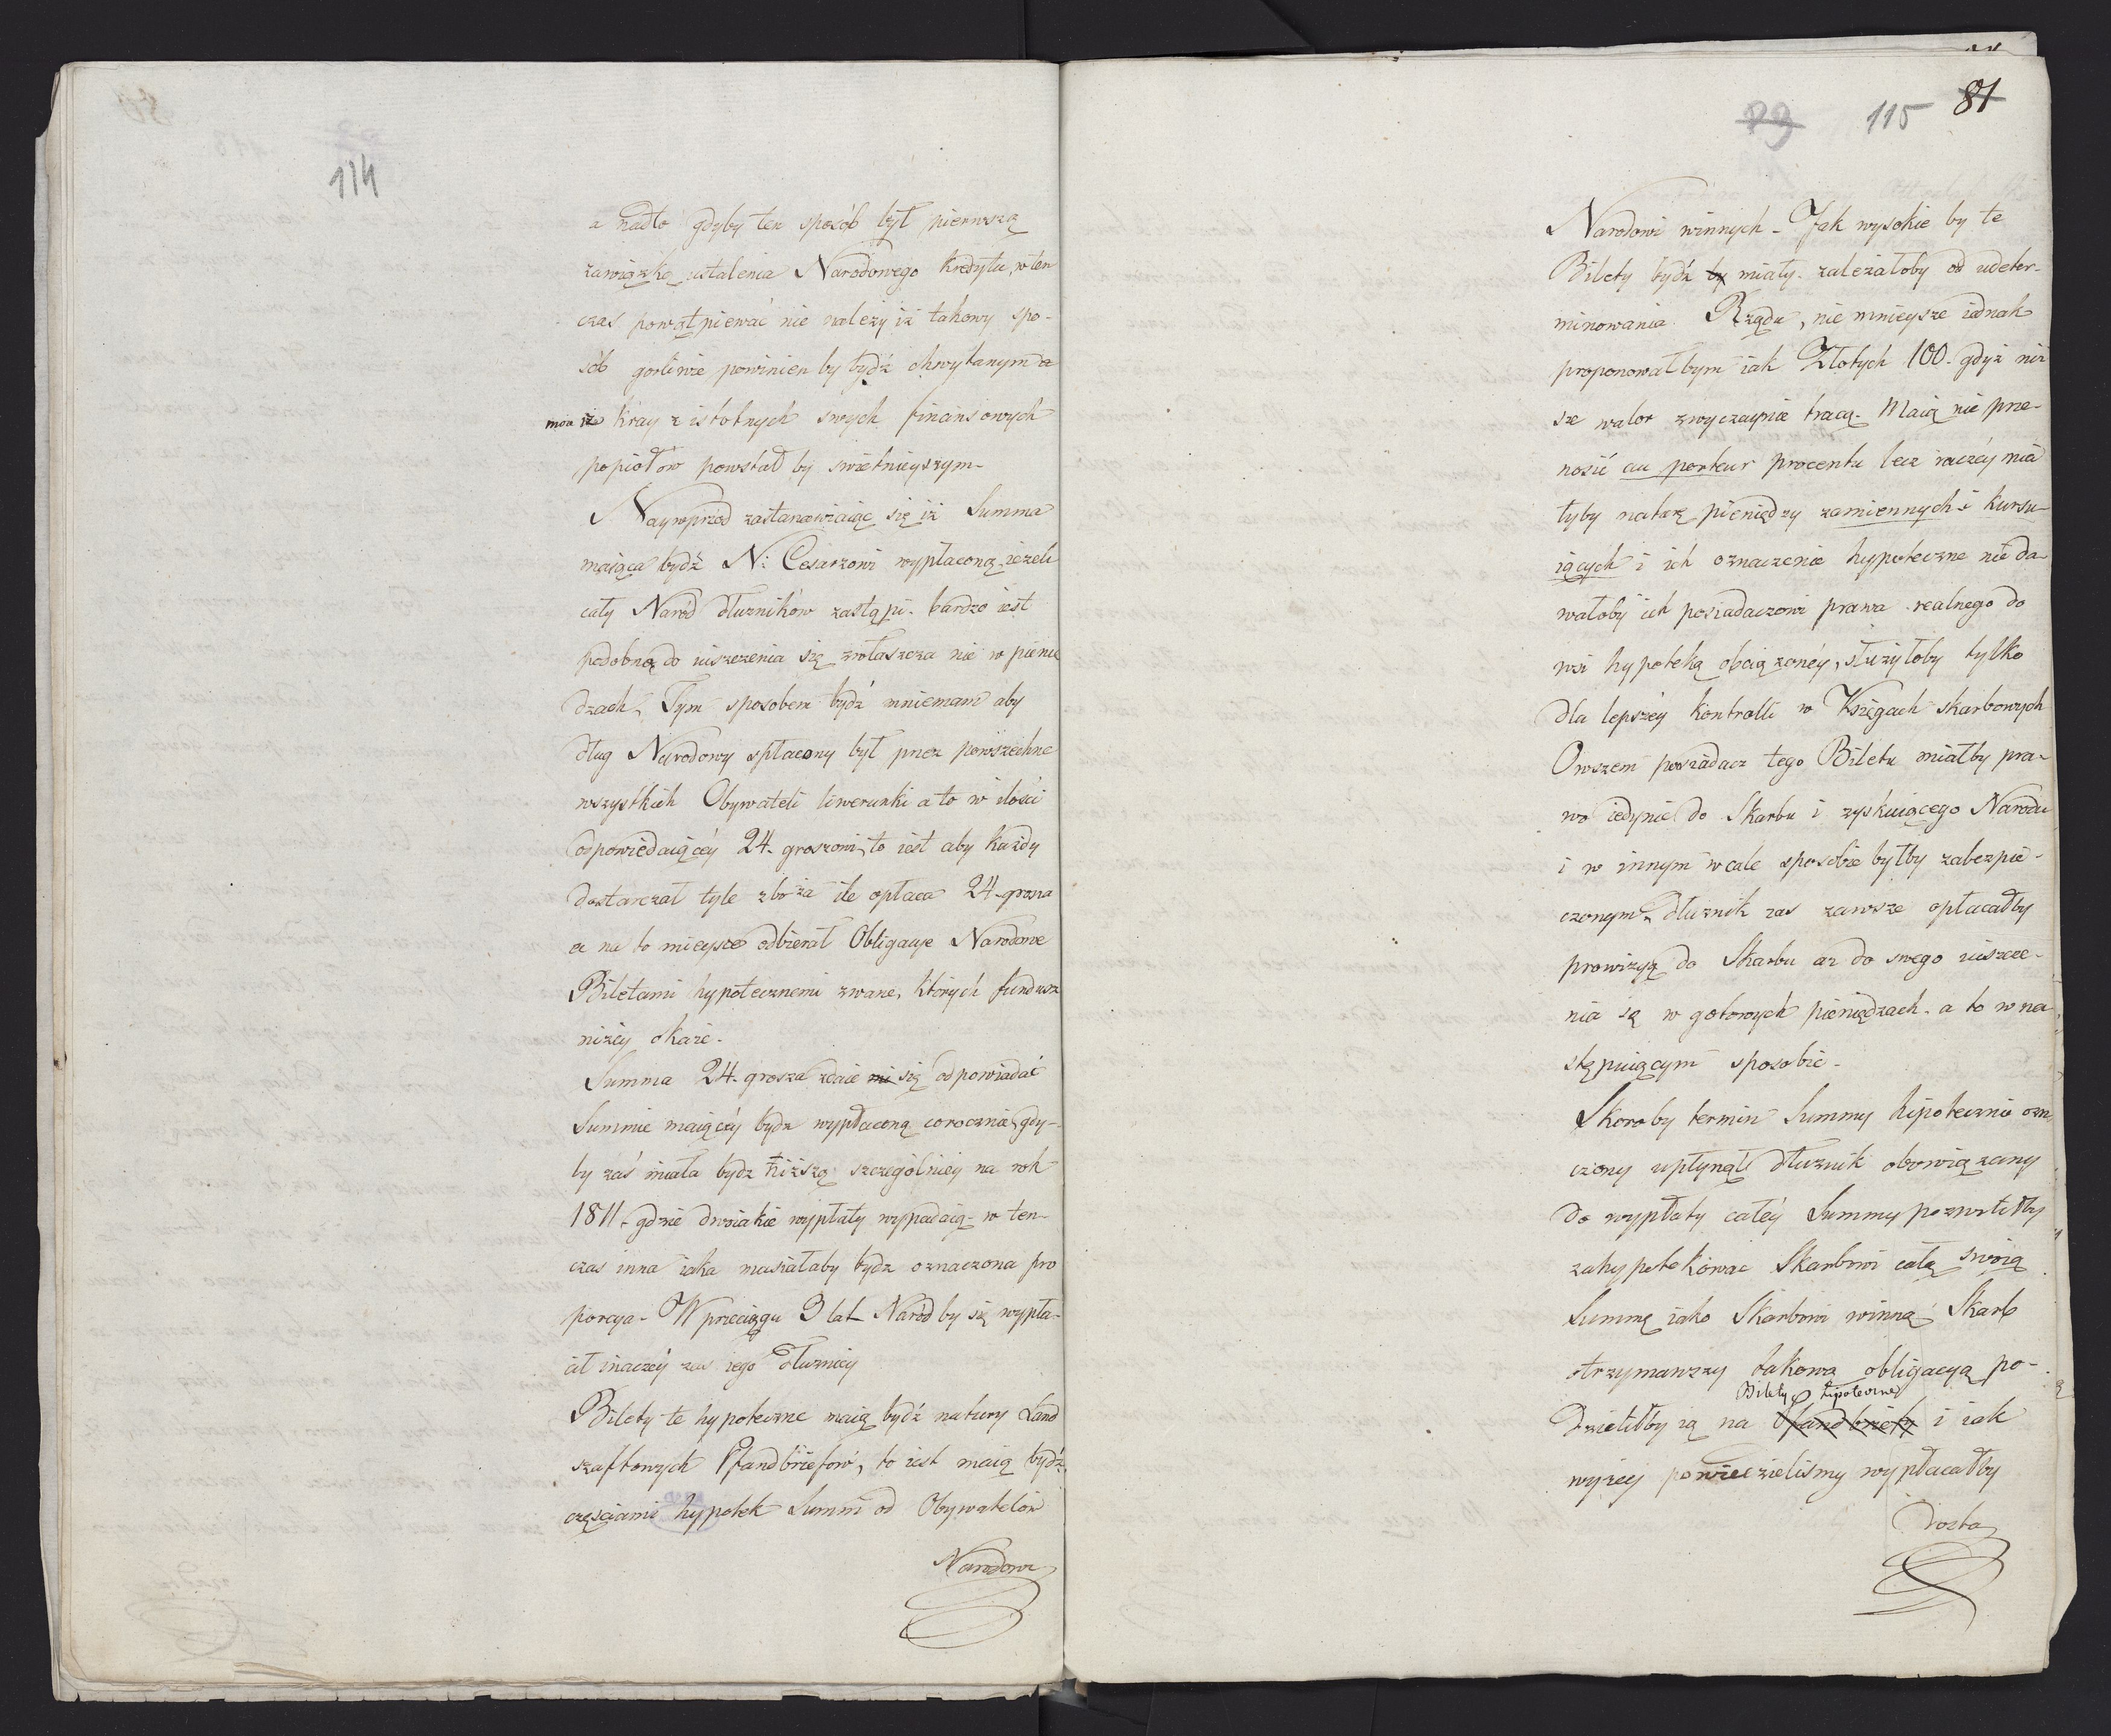 114
a nadto gdyby ten sposób był pierwszą
zawiązkę ustalenia Narodowego kredytu, w ten
czas powątpiewać nie należy iż takowy spo-
sób gorliwie powinien by bydź chwytanym a
iż Kray z istotnych swych finansowych
popiołów powstał by swietnieyszym-
Naywprzód zastanawiaiąc się iż Summa
maiąca bydź N: Cesarzowi wypłaconą, ieżeli
cały Naród dłużników zastąpi. bardzo iest
podobną do uiszczenia się zwłaszcza nie w pienią
dzach, Tym sposobem bydź mniemam aby
dług Narodowy spłacony był przez powszechne
wszystkich Obywateli liwerunki a to w ilości
odpowiedaiącéy 24. groszowi, to iest aby każdy
dostarczał tyle zboża ile opłaca 24-grosza
a na to mieysce odbierał Obligacye Narodowe
Biletami hypotecznemi zwane, których fundusz
niżéy okaże-
Summa 24. grosza zdaie mi się odpowiadać
Summie maiącéy bydz wypłaconą corocznie, gdy-
by zaś miała bydz niższą szczególniey na rok
1811. gdzie dwoiakie wypłaty wypadaią- w ten-
czas inna iaka musiałaby bydz oznaczona pro
porcya- W przeciągu 3 lat Naród by się wypła-
cił inaczéy zas iego dłużnicy
Bilety te hypoteczne maią bydź natury Land
szaftowych Pfandbriefow, to iest maią bydź
częsciami hypotek Summ od Obywatelów
Narodowi
29 115 81
Narodowi winnych- Jak wysokie by te
Bilety bydź by miały. zależałoby od udeter-
minowania Rządu, nie mnieysze iednak
proponowałbym iak Złotych 100. gdyż niż
sze walor zwyczaynie tracą- Maią nie prze-
nosić au porteur procentu lecz raczéy mia
łyby naturę pieniędzy zamiennych i kursu-
iących i ich oznaczenie hypoteczne nie da-
wałoby ich posiadaczowi prawa realnego do
wsi hypoteką obciążonéy, służyłoby tylko
dla lepszéy kontrolli w Xsięgach skarbowych
Owszem posiadacz tego Biletu miałby pra-
wo iedynie do Skarbu i zyskuiącego Narodu
i w innym wcale sposobie byłby zabezpie-
czonym, dłużnik zas zawsze opłacałby
prowizyą do Skarbu aż do swego uiszcze-
nia się w gotowych pieniądzach. a to w na
stępuiącym sposobie-
Skoroby termin Summy hipotecznie ozn
czony upłynął dłużnik obowiązany
do wypłaty całéy Summy pozwoliłby
zahypotekować Skarbowi całą swoią
Summę iako Skarbowi winną Skarb
otrzymawszy takową obligacyą po-
Bilety hipoteczne
dzieliłby ią na Pfandbriefy i iak
wyżéy powiedzieliśmy wypłacałby